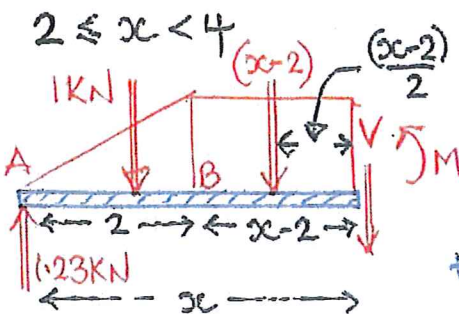 2 ≤ x < 4
1KN
(x-2)
(x-2)
2
A
B
V
M
2
x-2
1.23KN
x
+